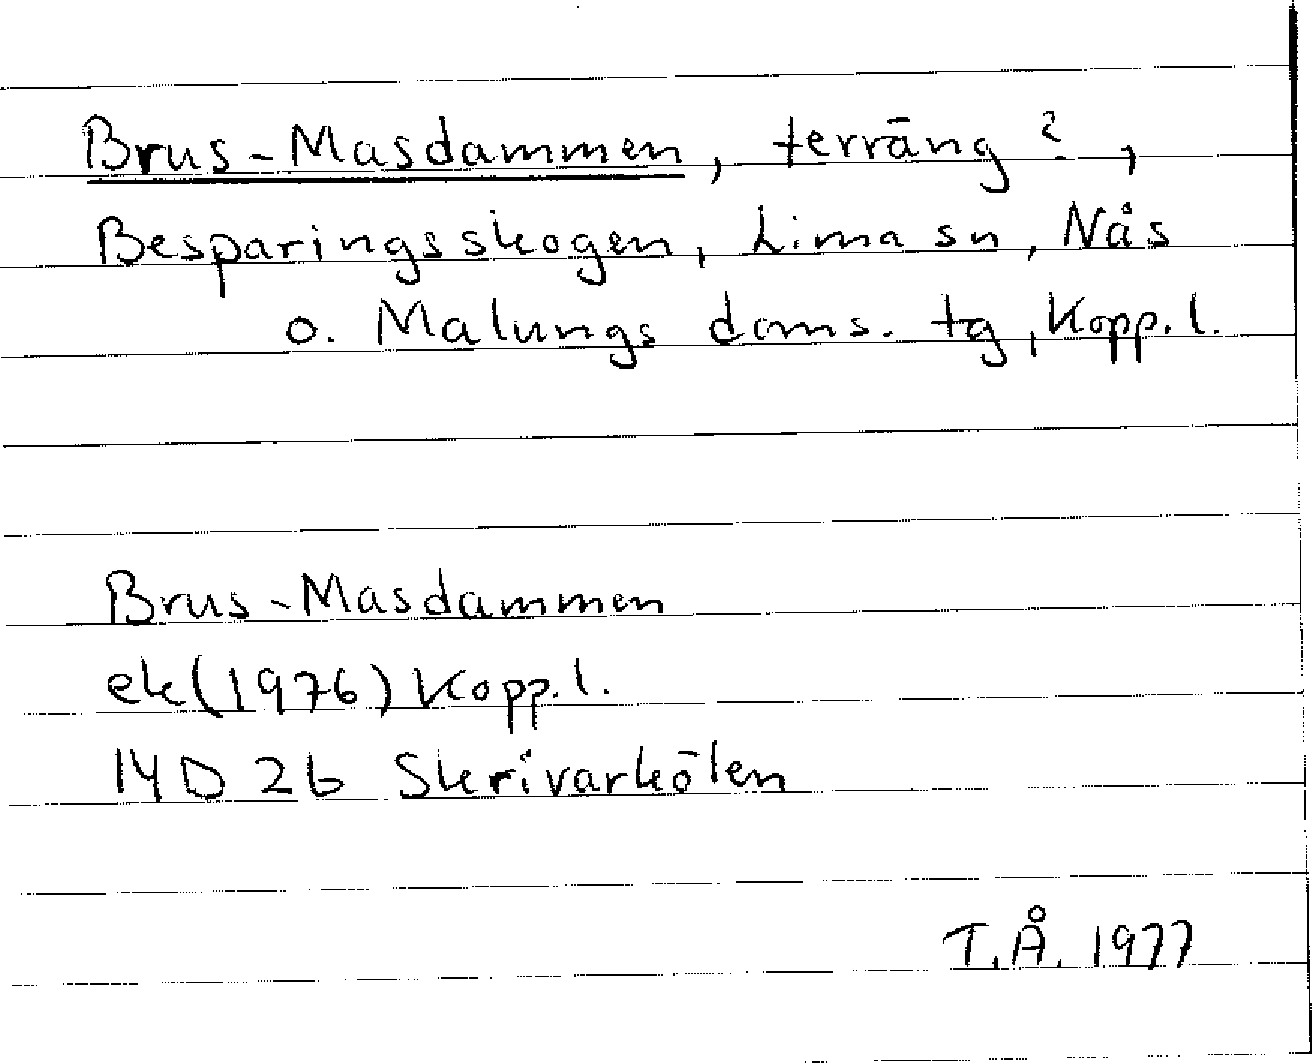 Brus-Masdammen, terräng?,
Besparingsskogen, Lima sn, Nås
o. Malungs doms. tg, Kopp.l.
Brus-Masdammen
ek(1976) Kopp.l.
14D 2b Skrivarkölen
T.Å. 1977